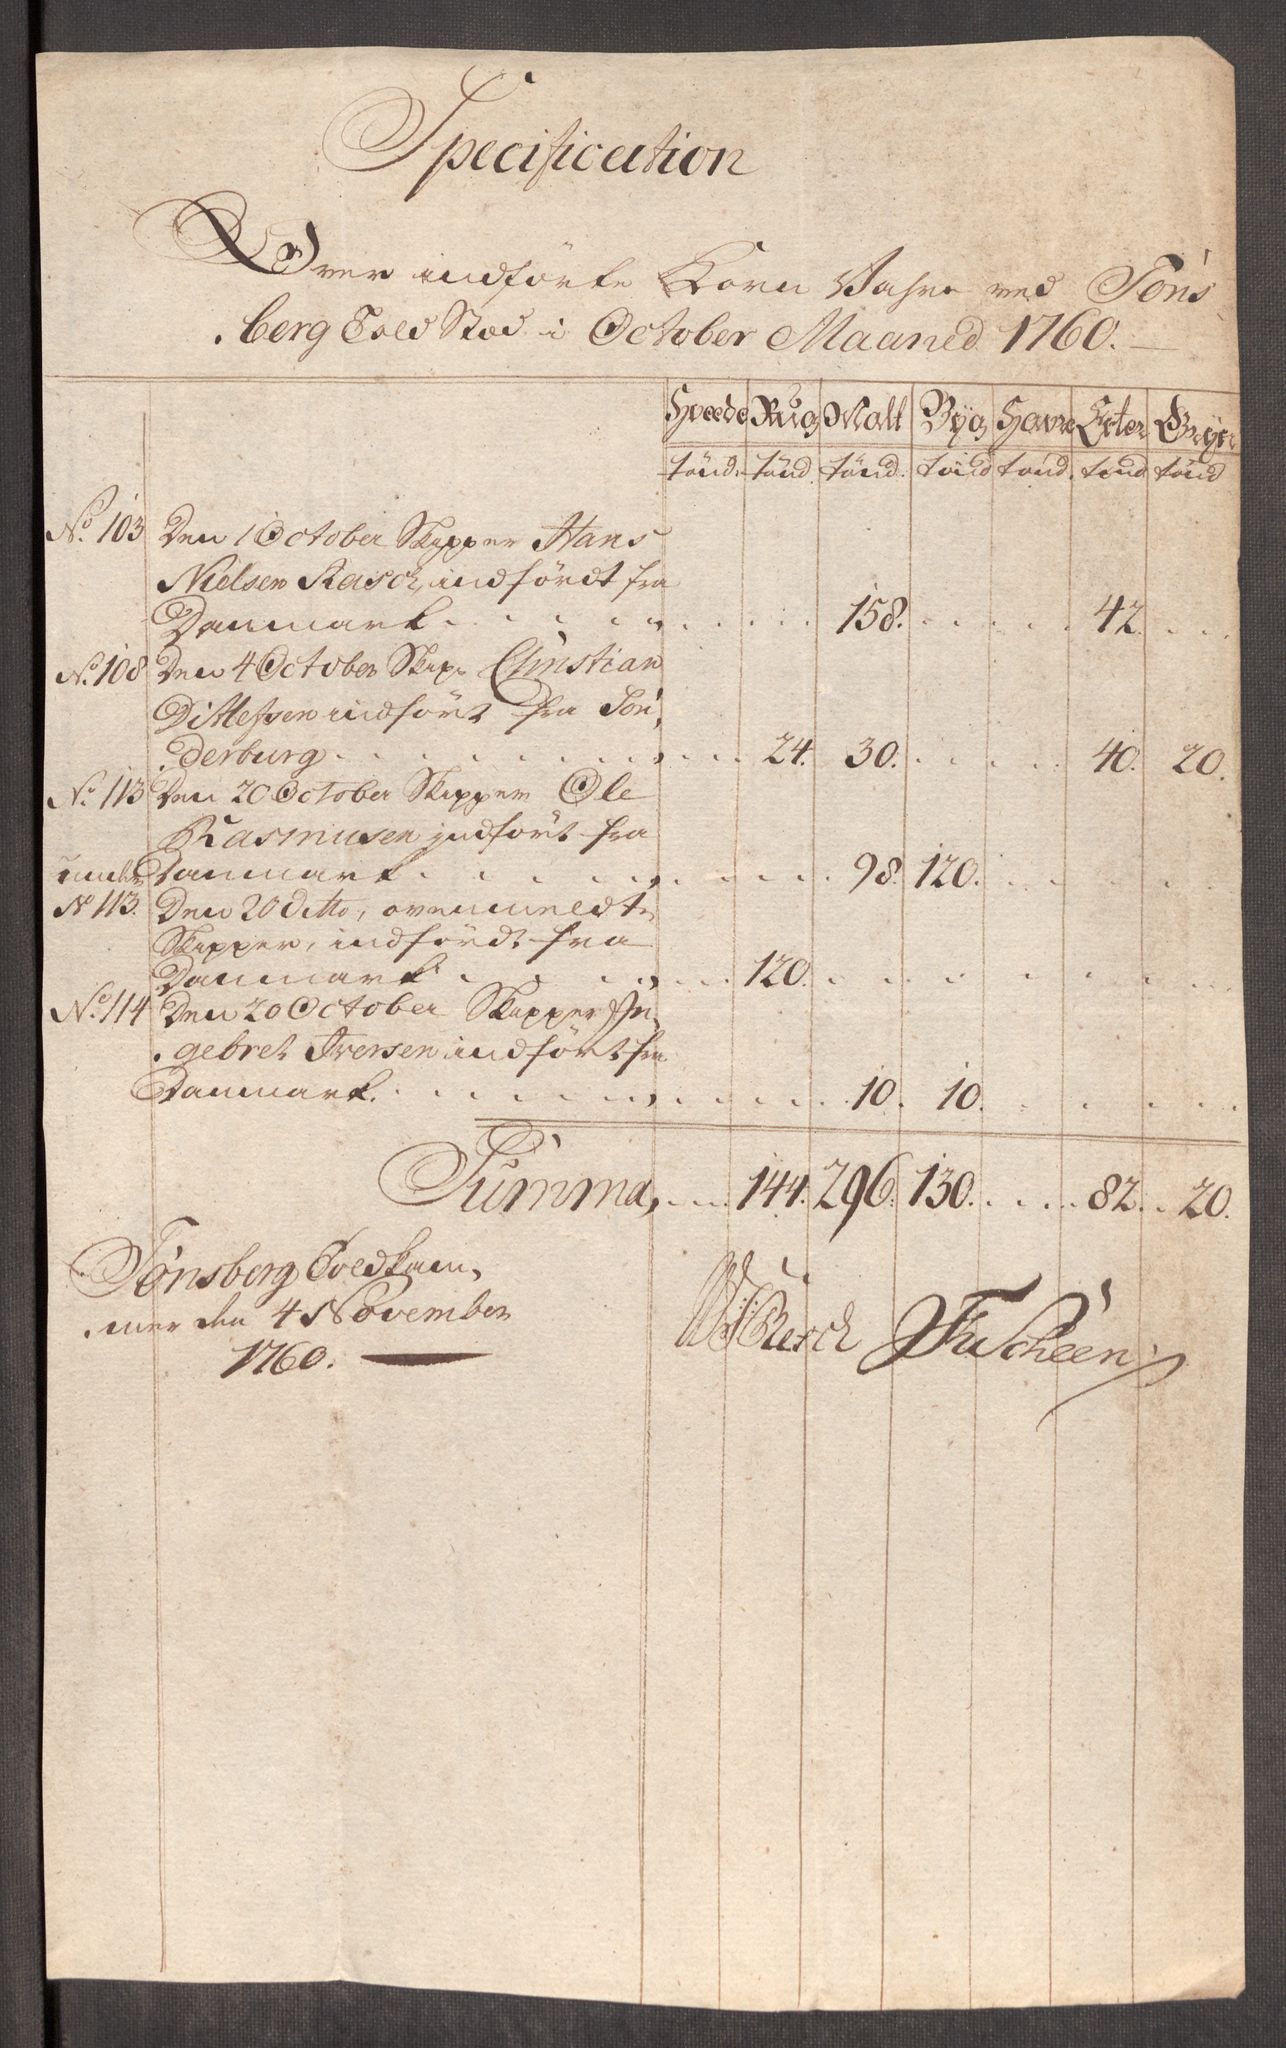 Specification
Over indförte Korn Vahre ved Töns
berg Told Stæd i October Maaned 1760.
Hvede Rug Malt Byg Havre Erter Gryn
tönd. tönd. tönd. tönd tönd. tönd tönd
No. 103 Den 1 October Skipper Hans
Nielsen Rasch, indfördt fra
Danmark . . . . . 158. . . . . 42. . . .
No. 108 Den 4 October Skip. Christian
Ditlefsen indfört fra Sön,
derburg . . . . . 24. 30. . . . . 40. 20.
No. 113 Den 20 October Skipper Ole
Rasmusen indfört fra
under Danmark . . . . . 98. 120. . . . .
No 113. Den 20 Ditto, ovenmeldte
Skipper, indfördt fra
Danmark . . . . . 120. . . . . .
No. 114 Den 20 October Skipper In,
gebret Iversen indfört fra
Danmark. . . . . . 10. 10. . . . .
Summa, . . 144. 296. 130. . . . 82. . 20.
Tönsberg Toldkam,
mer den 4 November
1760.